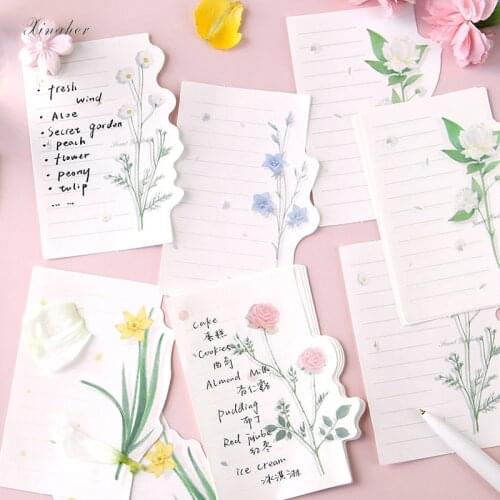 Xinaher
• fresh
wind
• Aloe
• Secret garden
• peach
• flower
• peony
• tulip
... ...
cake
蛋糕
Cookies
曲奇
Almond Milk
杏仁露
pudding
布丁
Red jujube
红枣
ice cream
冰淇淋